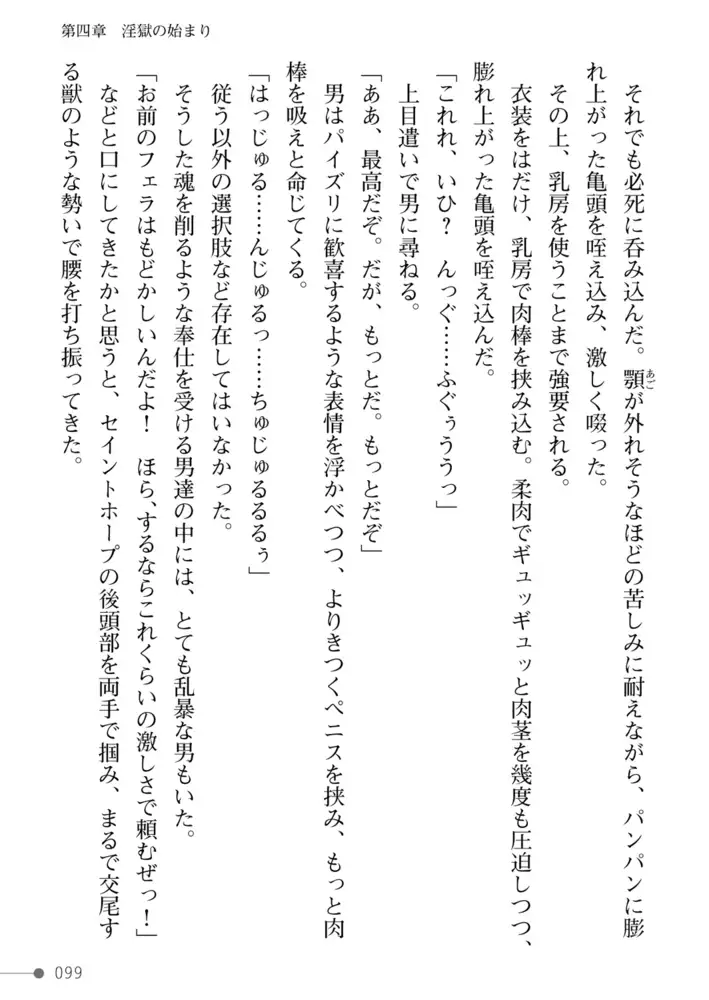 第四章　淫獄の始まり
それでも必死に呑み込んだ。顎が外れそうなほどの苦しみに耐えながら、パンパンに膨
あご
れ上がった亀頭を咥え込み、激しく啜った。
その上、乳房を使うことまで強要される。
衣装をはだけ、乳房で肉棒を挟み込む。柔肉でギュッギュッと肉茎を幾度も圧迫しつつ、
膨れ上がった亀頭を咥え込んだ。
「これれ、いひ？　んっぐ……ふぐぅううっ」
上目遣いで男に尋ねる。
「ああ、最高だぞ。だが、もっとだ。もっとだぞ」
男はパイズリに歓喜するような表情を浮かべつつ、よりきつくペニスを挟み、もっと肉
棒を吸えと命じてくる。
「はっじゅる……んじゅるっ……ちゅじゅるるるぅ」
従う以外の選択肢など存在してはいなかった。
そうした魂を削るような奉仕を受ける男達の中には、とても乱暴な男もいた。
「お前のフェラはもどかしいんだよ！　ほら、するならこれくらいの激しさで頼むぜっ！」
などと口にしてきたかと思うと、セイントホープの後頭部を両手で掴み、まるで交尾す
る獣のような勢いで腰を打ち振ってきた。
099